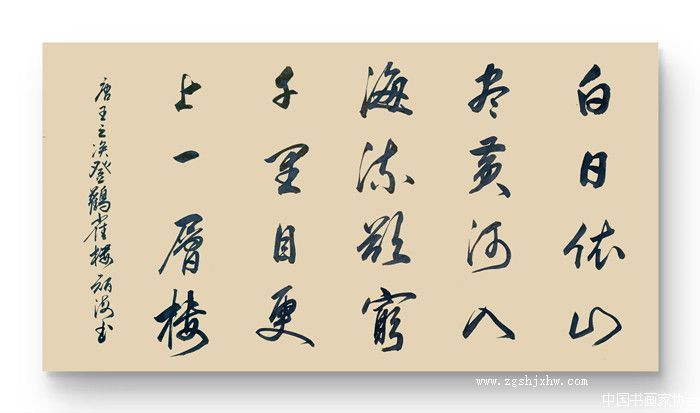 白日依山
尽黄河入
海流欲穷
千里目更
上一层楼
唐王之涣登鹳雀楼 海书
www.zgshjxhw.com
中国书画家协会